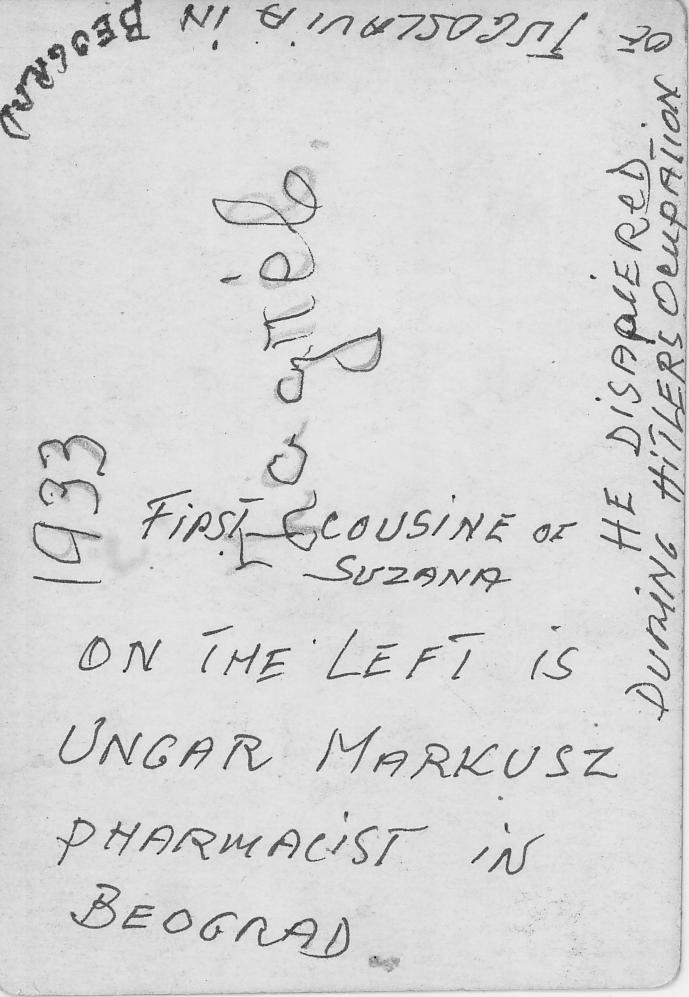 1933
FIRST COUSINE OF
SUZANA
ON THE LEFT IS
UNGAR MARKUSZ
PHARMACIST IN
BEOGRAD
HE DISAPIERED
DURING HITLERS OCUPATION
OF JUGOSLAVIA IN BEOGRAD